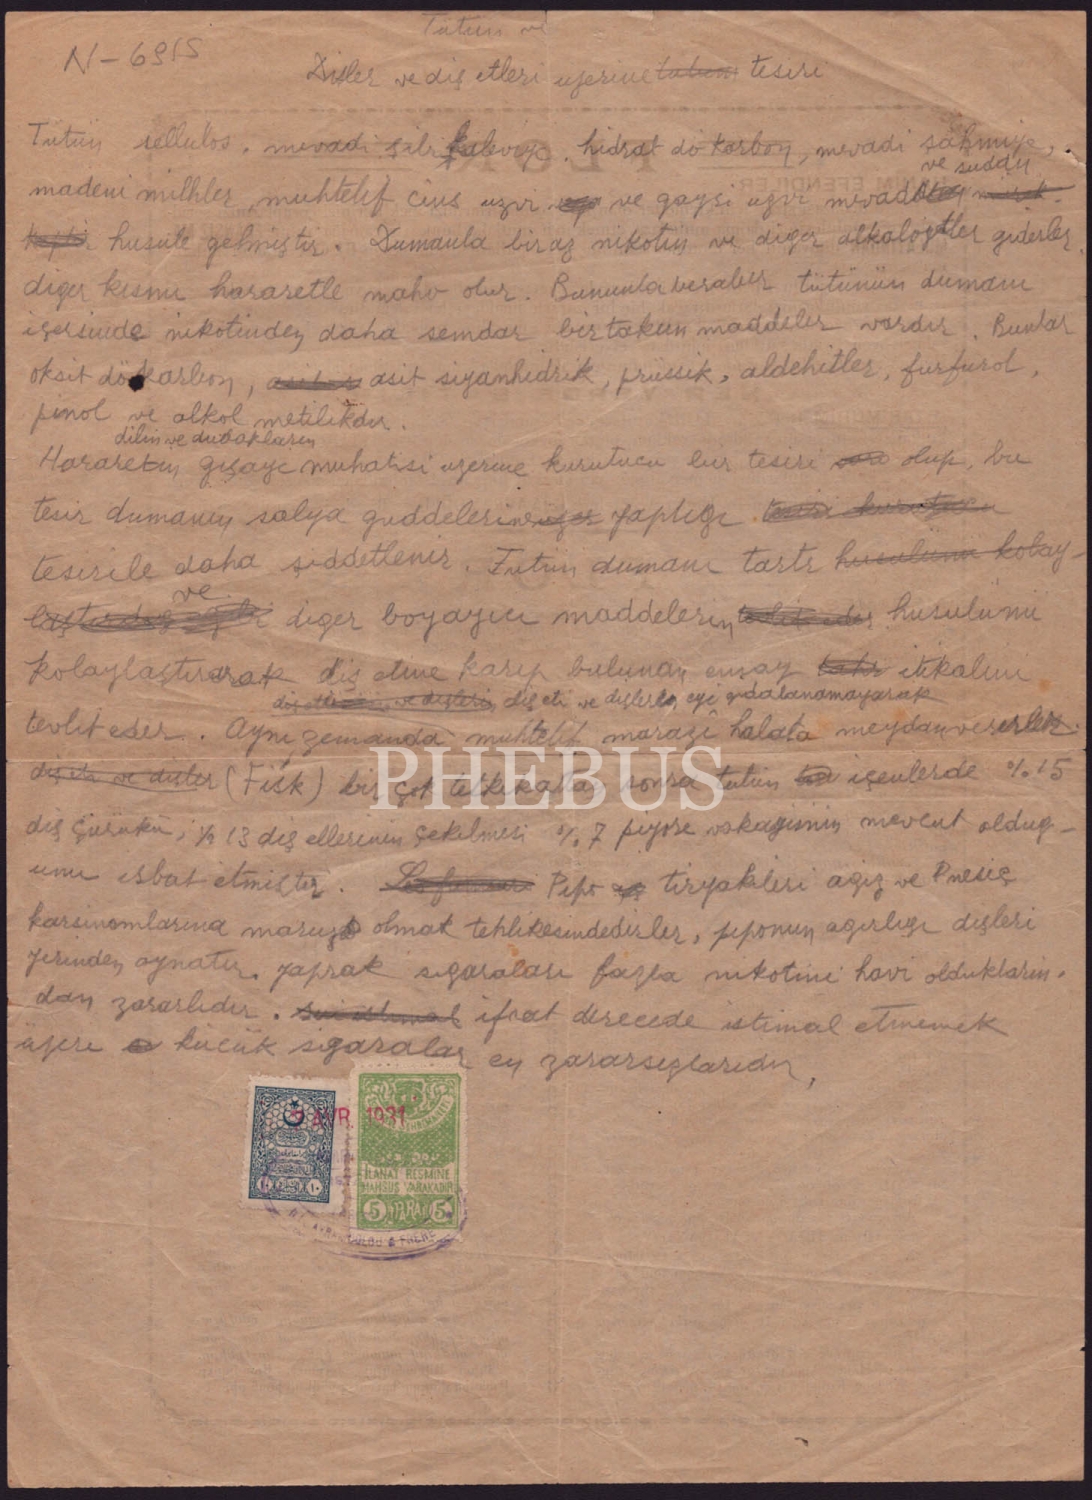 N-6915
Tütün ve
Dişler ve diş etleri üzerine tütün tesiri
Tütün sellulos, mevadi kaleviye, hidrat dö karbon, mevadi şahmiye,
ve sudan
madeni milhler, muhtelif cins uzvi ve gayri uzvi mevaddan
husule gelmiştir. Dumanla biraz nikotin ve diger alkaloitler giderler
diger kısmı hararetle mahv olur. Bununla beraber tütünün dumanı
içerisinde nikotinden daha semdar bir takım maddeler vardır. Bunlar
oksit dö karbon, asit siyanhidrik, prüssik, aldehitler, furfurol,
pinol ve alkol metilikdir.
dilin ve dudakların
Hararetin gışayi muhatisi uzerine kurutucu bir tesiri olup, bu
tesir dumanın salya guddelerine yaptığı tesiri kurutucu
tesirile daha şiddetlenir. Tütün dumanı tartr husulünü kolay-
laştırdığı
ve
diger boyayıcı maddelerin husulünü
kolaylaştırarak diş etine karip bulunan itikalini
ve dişleri diş eti ve dişlerin eyi gıdalanamayarak
tevlit eder. Ayni zemanda muhtelif marazî halata meydan verirler.
diş eti ve dişler (Fisk) bir çok tetkikattan sonra tütün içenlerde % 15
diş çürükü, % 13 diş etlerinin çekilmesi % 7 piyore vakayiinin mevcut oldug-
unu isbat etmiştir. Pipo tiryakileri agız ve
karsinomlarına maruz olmak tehlikesindedirler, piponun agırlıgı dişleri
yerinden oynatır. Yaprak sigaraları fazla nikotini havi oldukların-
dan zararlıdır. sui istimal ifrat derecede istimal etmemek
üzere küçük sigaralar en zararsızlarıdır.
2 AVR. 1931
ILANAT RESMİNE
MAHSUS VARAKADIR
5 PARA 5
١٠ ١٠
& FRÈRE
PHEBUS